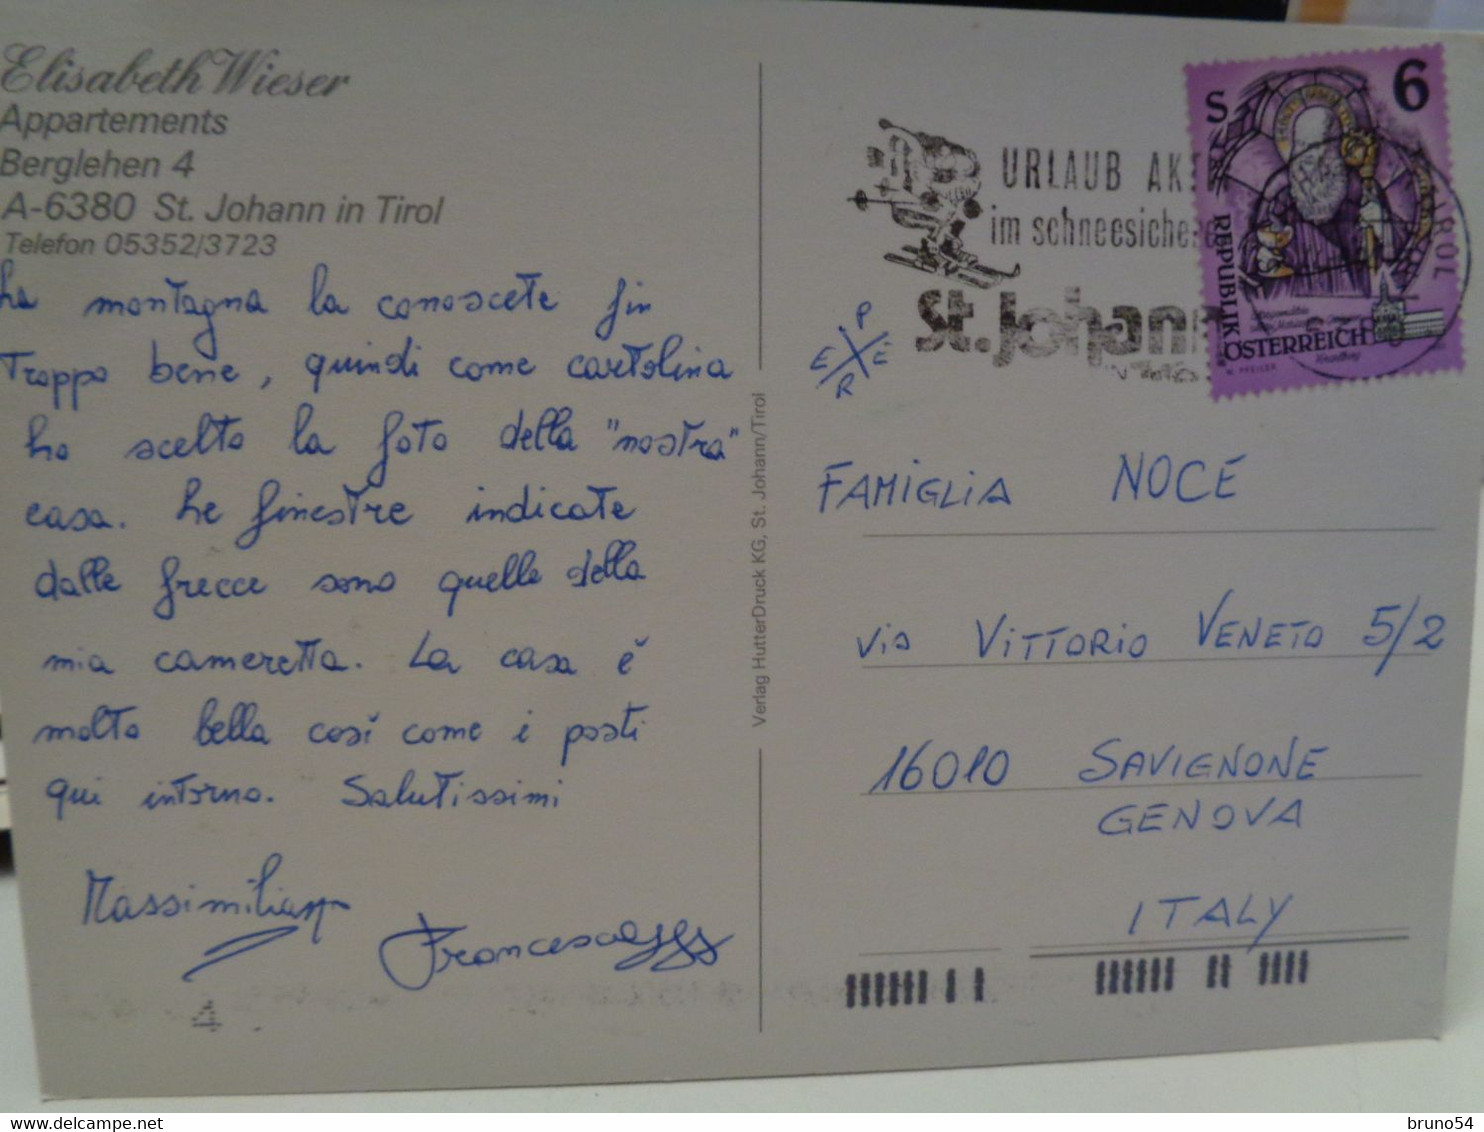 Elisabeth Wieser
Appartements
Berglehen 4
A-6380 St. Johann in Tirol
Telefon 05352/3723
La montagna la conoscete fin
Troppo bene, quindi come cartolina
ho scelto la foto della "nostra"
casa. Le finestre indicate
dalle frecce sono quelle della
mia cameretta. La casa è
molto bella così come i posti
qui intorno. Salutissimi
Massimiliano
Francesca
4
Verlag HutterDruck KG, St. Johann/Tirol
URLAUB
im schneesichere
St. Johann
TIROL
S 6
REPUBLIK
ÖSTERREICH
H. PFEILER
P
E E
R
FAMIGLIA NOCE
Via VITTORIO VENETO 5/2
16010 SAVIGNONE
GENOVA
ITALY
bruno54